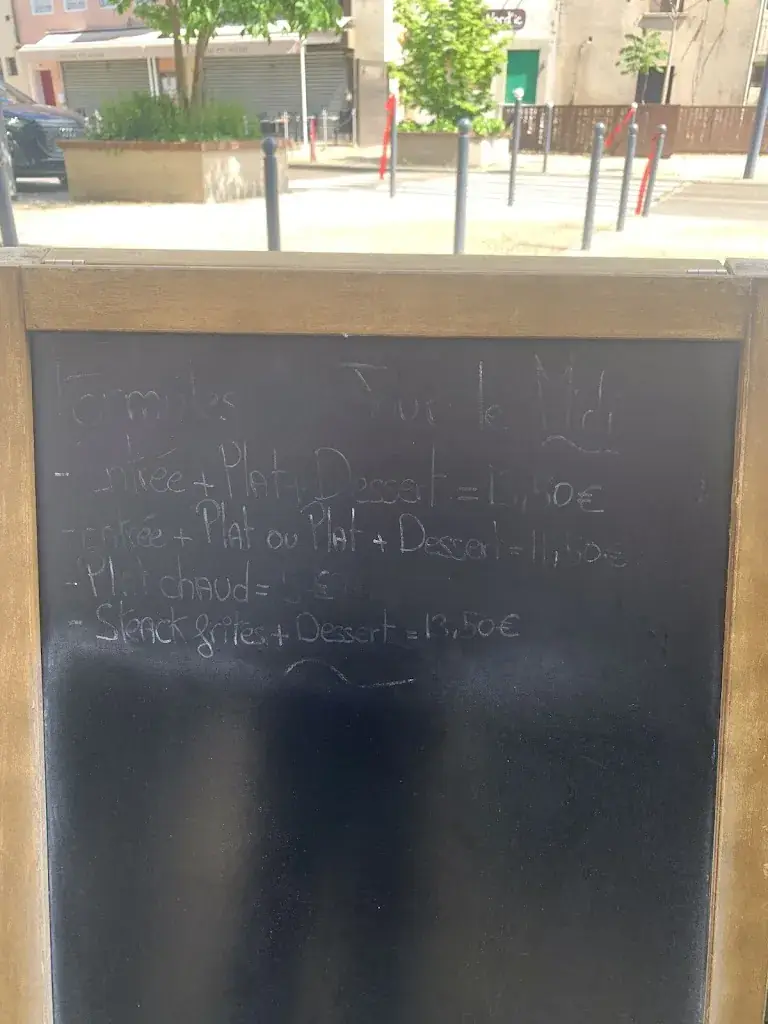 Formules Sur le Midi
- Entrée + Plat + Dessert = 13,50€
- Entrée + Plat ou Plat + Dessert = 11,50€
- Plat chaud = €
- Steack frites + Dessert = 13,50€